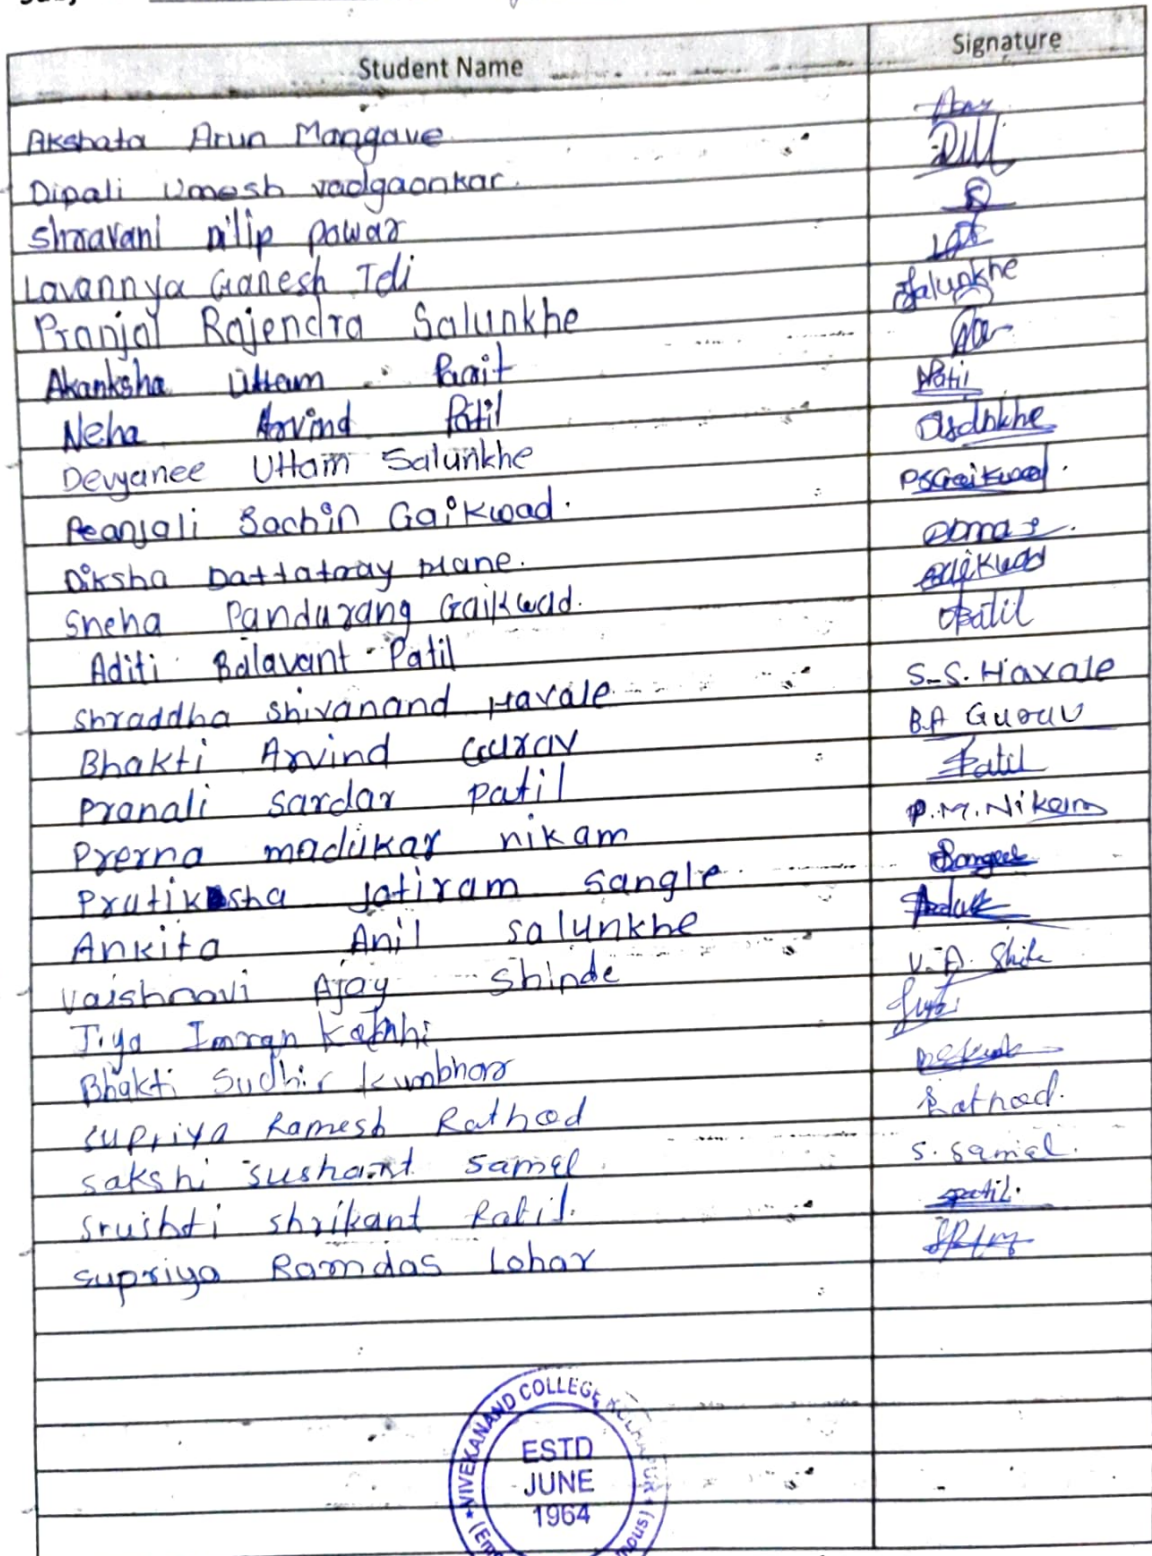 Student Name Signature
Akshata Arun Mangave
Dipali Umesh vadgaonkar.
Shravani Dilip powar
Lavannya Ganesh Teli
Pranjal Rajendra Salunkhe Salunkhe
Akanksha Uttam Parit
Neha Arvind Patil Patil
Devyanee Uttam Salunkhe
Peanjali Sachin Gaikwad. PSGaikwad.
Diksha Dattatray Mane.
Sneha Pandurang Gaikwad. Gaikwad
Aditi Balavant Patil Patil
Shraddha Shivanand Havale S.S. Havale
Bhakti Arvind Gurav B.A Gurav
Pranali sardar patil Patil
Prerna madukar nikam P.M.Nikam
Pratiksha jotiram sangle
Ankita Anil salunkhe
Vaishnavi Ajay Shinde V. A.
Jiya Imran
Bhakti Sudhir Kumbhar
Supriya Ramesh Rathod Rathod.
sakshi sushant samel S. Samel.
Srushti shrikant Patil. Patil.
Supriya Ramdas Lohar
VIVEKANAND COLLEGE, KOLHAPUR
ESTD
JUNE
1964